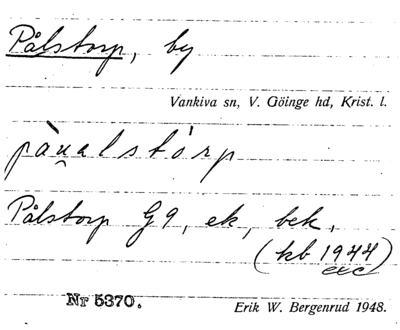 Pålstorp, by
Vankiva sn, V. Göinge hd, Krist. l.
pàu̯alstórp
Pålstorp G9, ek, bek.
(kb 1944)
exc
Nr 5370.
Erik W. Bergenrud 1948.